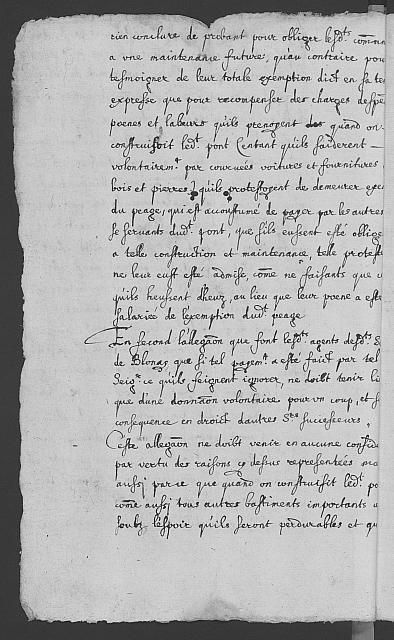 rien conclure de probant pour obliger lesd.ts commun
a vne maintenance future, quau contraire pou
tesmoigner de leur totale exemption dict en sa te
expresse que pour recompenser des charges despe
poenes et labeurs quils prenogent des quand on
construisoit led.t pont lentant quils saiderent
volontairem.t par couruées voitures et fournitures
bois et pierres, quils protestogent de demeurer exe
du peage, qui est accoustumé de payer par les autres
se seruants dud.t pont, que sils eussent esté oblige
a telle construction et maintenance, telle protest
ne leur eust esté admise, cōme ne faisants que c
quils heussent dheuz, au lieu que leur poene a este
salariée de lexemption dud.t peage
En second lallegaōn que font lesd.ts agents desd.ts S
de Blonay que si tel payem.t a esté faict par tel
Seig.r ce quils feignent ignorer, ne doibt tenir li
que dune donnaōn volontaire pour vn coup, et s
consequence en droict dautres S.rs successeurs,
Ceste allegaōn ne doibt venir en aucune consid
par vertu des raisons cy dessus representées ma
aussj parce que quand on construisit led.t po
cōme aussj tous autres bastiments importants
soubz lespoir quils seront perdurables et qu